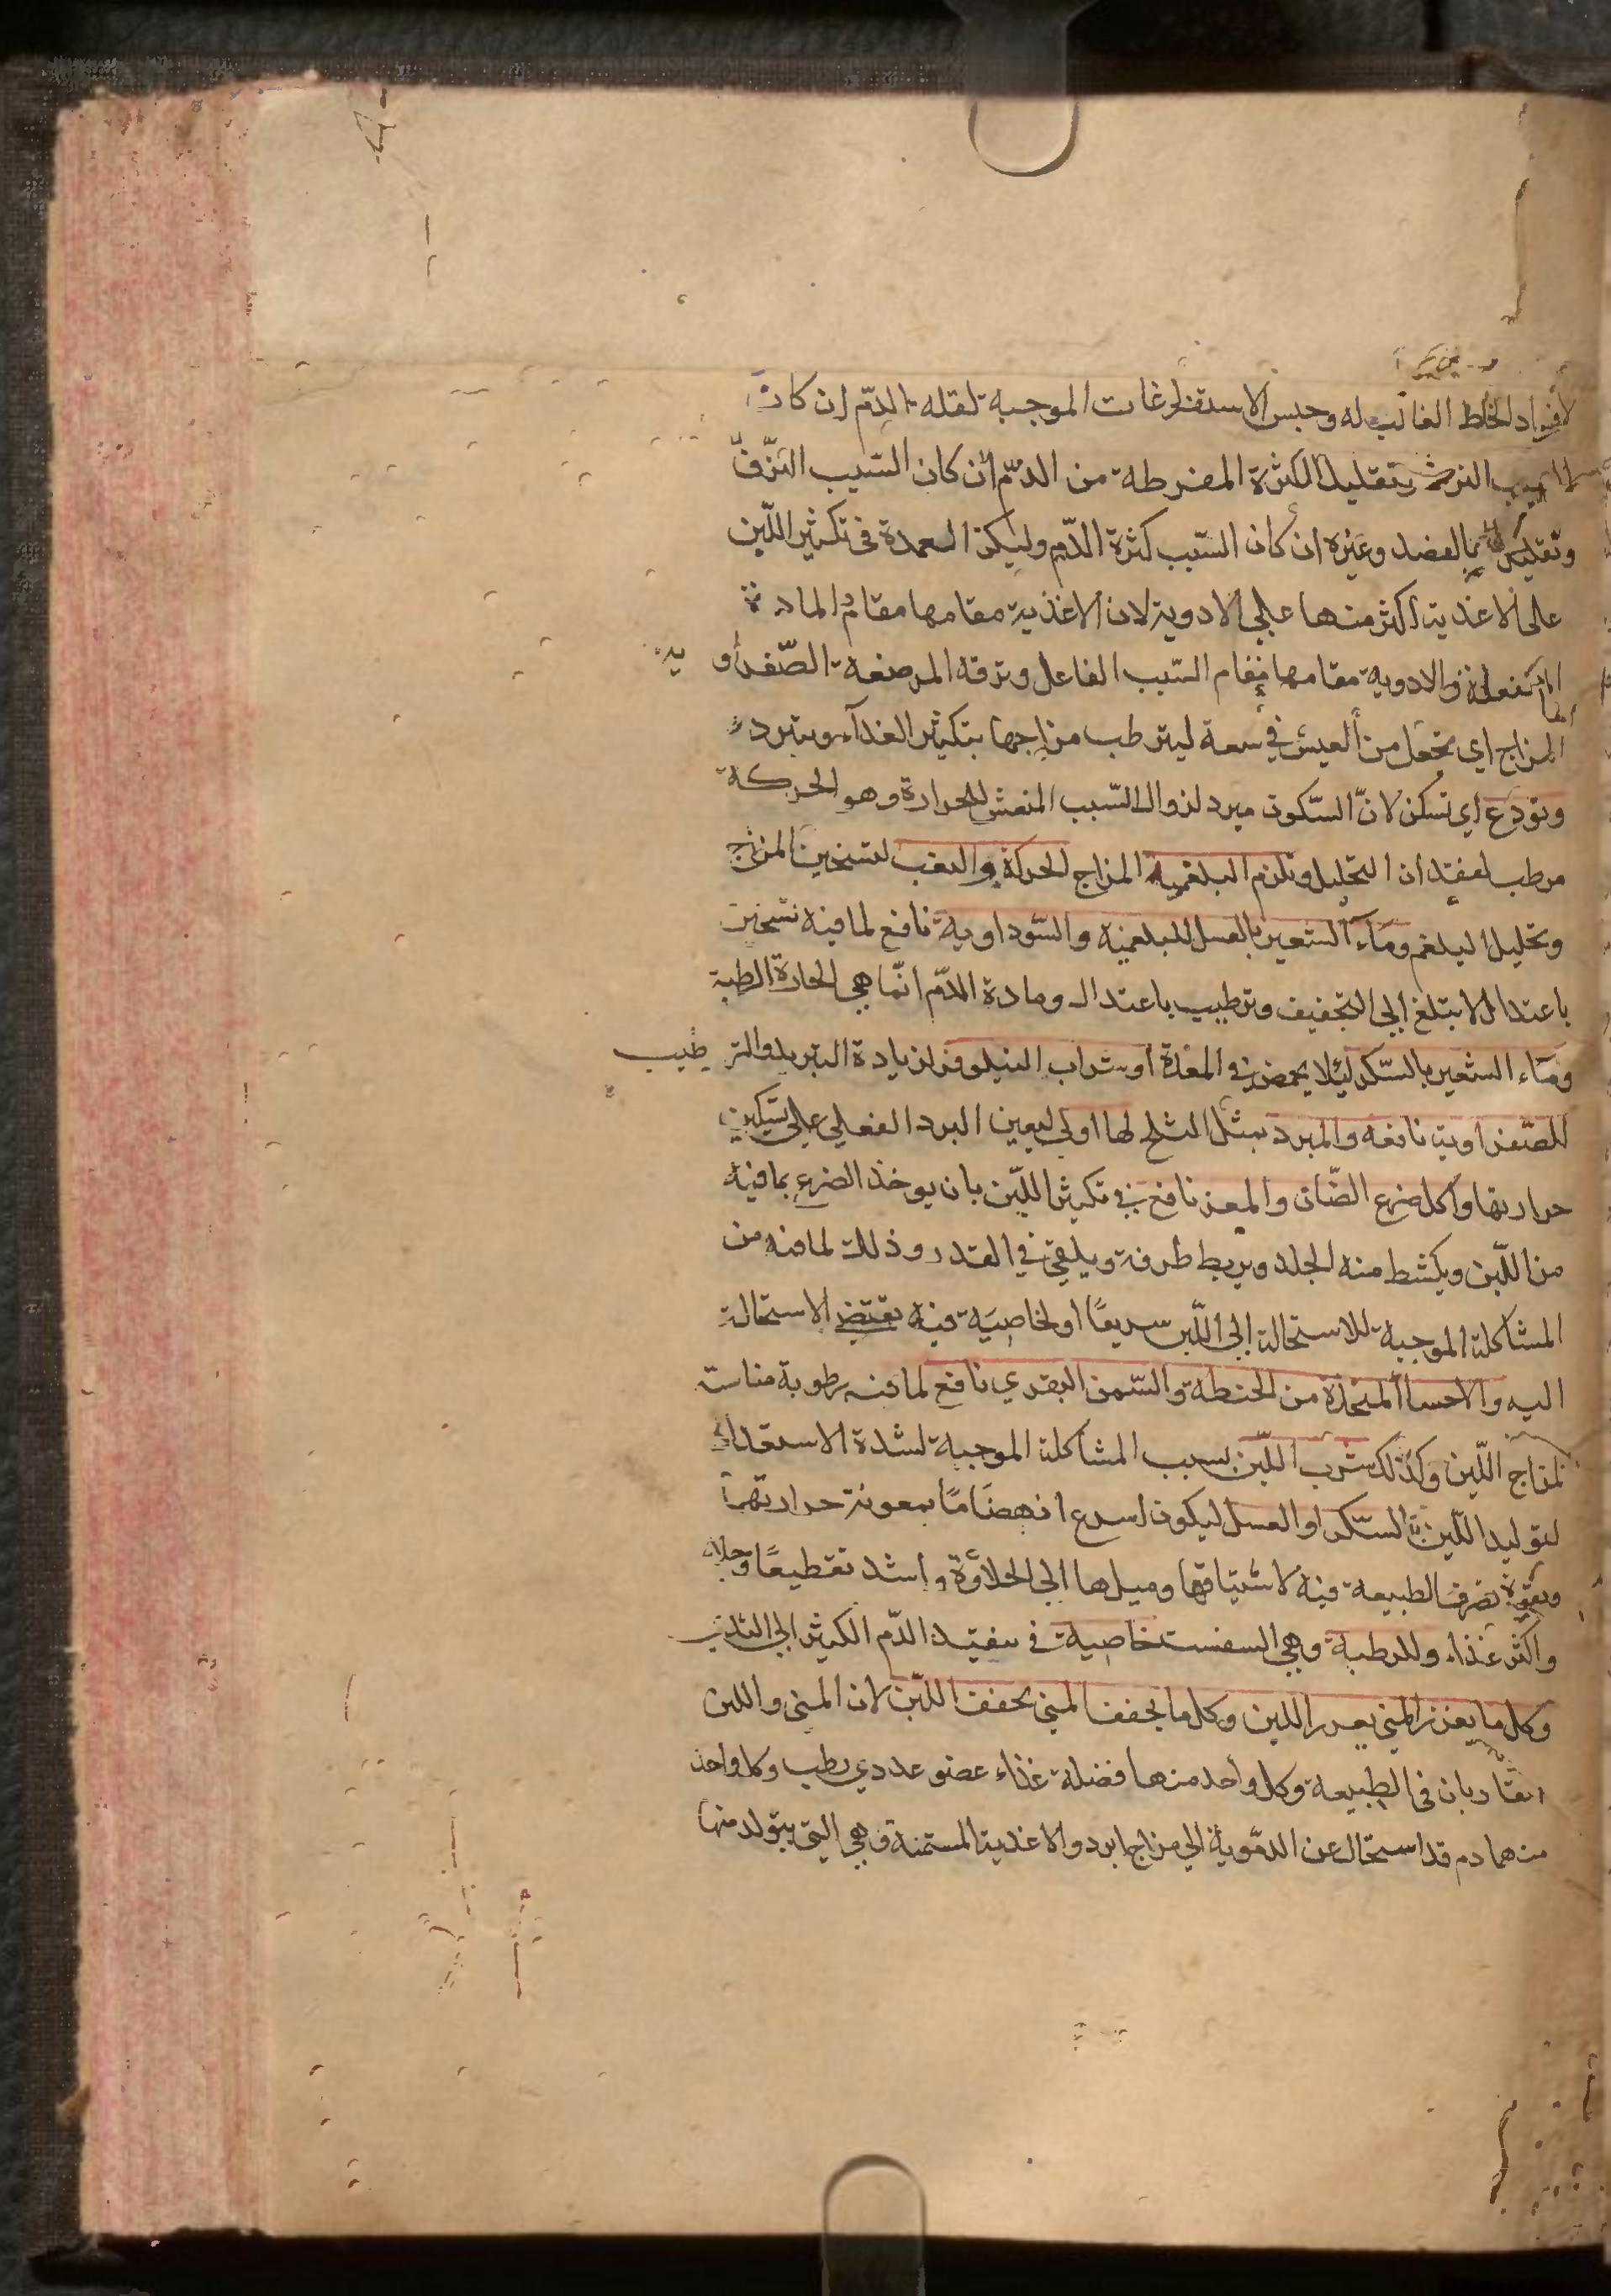 لافساد الخلط الغالب له وحبس الاستفراغات الموجبة لقلة الدم ان كان
السبب النزف وتقليل الكثرة المفرطة من الدم ان كان السبب النزف
وتقليل بالفصد وغيره ان كان السبب كثرة الدم وليكن العمدة فى تكثير اللبن
على الاغذية اكثر منها على الادوية لان الاغذية مقامها مقام المادة
المنفعلة والادوية مقامها مقام السبب الفاعل وترفه المرضعة الصفراوية
المزاج اي تجعل من العيش في سعة ليترطب مزاجها بتكثير الغذآء ويتبرد
وتودع اي تسكن لانّ السّكون مبرد لزوال السّبب المنعش للحرارة وهو الحركة
مرطب لفقدان التحليل وتلزم البلغمية المزاج الحركة والتعب لتسخين المزاج
وتحليل البلغم ومآء الشعير بالعسل للبلغمية والسّوداوية نافع لما فيه تسخين
باعتدال لا يبلغ الى التجفيف وترطيب باعتدال ومادة الدّم انّما هي الحارة الرطبة
ومآء الشعير بالسّكر ليلا يحمض في المعدة او شراب النيلوفر لزيادة التبريد والترطيب
للصّفراوية نافعة والمبرد بمثل الثلج لها اولى ليعين البرد الفعلي على تسكين
حرارتها واكل ضرع الضّان والمعز نافع في تكثير اللّبن بان يوخذ الضرع بما فيه
من اللّبن ويكشط منه الجلد ويربط طرفه ويلقى في القدر وذلك لما فيه من
المشاكلة الموجبة للاستحالة الى اللّبن سريعًا او لخاصيّة فيه تقتضي الاستحالة
اليه والاحسا المتخذة من الحنطة والسّمن البقري نافع لما فيه رطوبة مناسبة
لمزاج اللّبن وكذلك شرب اللّبن بسبب المشاكلة الموجبة لشدة الاستعداد
لتوليد اللّبن السّكر او العسل ليكون اسرع انهضامًا بمعونة حرارتهما
وبقوة تصرف الطبيعة فيه لاشتياقها وميلها الى الحلاوة واشد تقطيعًا وجلاء
واكثر غذاء وللرطبة وهي السفست خاصية في تنفيذ الدّم الكثير الى الثدي
وكل ما يغزر المني يغزر اللبن وكل ما يجفف المني يجفف اللّبن لان المني واللبن
متقاربان في الطبيعة وكل واحد منهما فضلة غذاء عضو غددي رطب وكل واحد
منهما دم قد استحال عن الدمّوية الى مزاج ابرد والاغذية المستمنة وهي التي يتولد منها